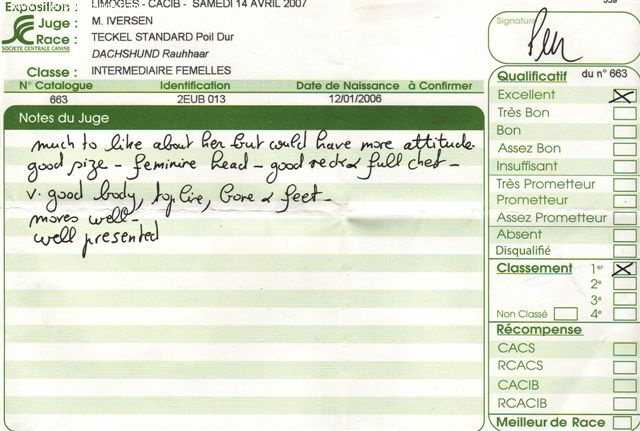 Exposition : LIMOGES - CACIB - SAMEDI 14 AVRIL 2007
Juge : M. IVERSEN
Race : TECKEL STANDARD Poil Dur
DACHSHUND Rauhhaar
SOCIETE CENTRALE CANINE
Classe : INTERMEDIAIRE FEMELLES
N° Catalogue Identification Date de Naissance à Confirmer
663 2EUB 013 12/01/2006
Notes du Juge
much to like about her but could have more attitude
good size - feminine head - good neck & full chest -
v. good body, topline, bone & feet -
moves well -
well presented
Signature
Qualificatif du n° 663
Excellent X
Très Bon
Bon
Assez Bon
Insuffisant
Très Prometteur
Prometteur
Assez Prometteur
Absent
Disqualifié
Classement 1er X
2e
3e
Non Classé 4e
Récompense
CACS
RCACS
CACIB
RCACIB
Meilleur de Race